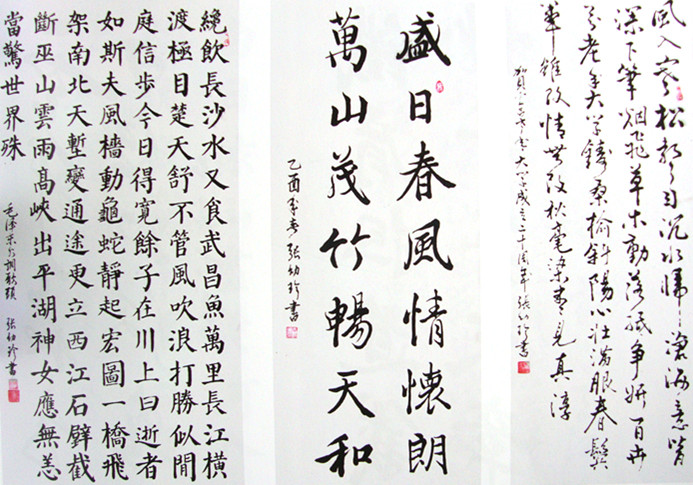 風入寒松自沉水歸滄海意皆
深下筆烟飛草木動落紙爭妍百卉
老年大學鑄桑榆斜陽心壯滿眼春鬢
華雖改情無改秋毫染見真淳
賀大學成立二十周年張幼珍書
盛日春風情懷朗
萬山茂竹暢天和
乙酉年春張幼珍書
纔飲長沙水又食武昌魚萬里長江橫
渡極目楚天舒不管風吹浪打勝似閒
庭信步今日得寬餘子在川上曰逝者
如斯夫風檣動龜蛇靜起宏圖一橋飛
架南北天塹變通途更立西江石壁截
斷巫山雲雨高峽出平湖神女應無恙
當驚世界殊
毛澤东水調歌頭 張幼珍書